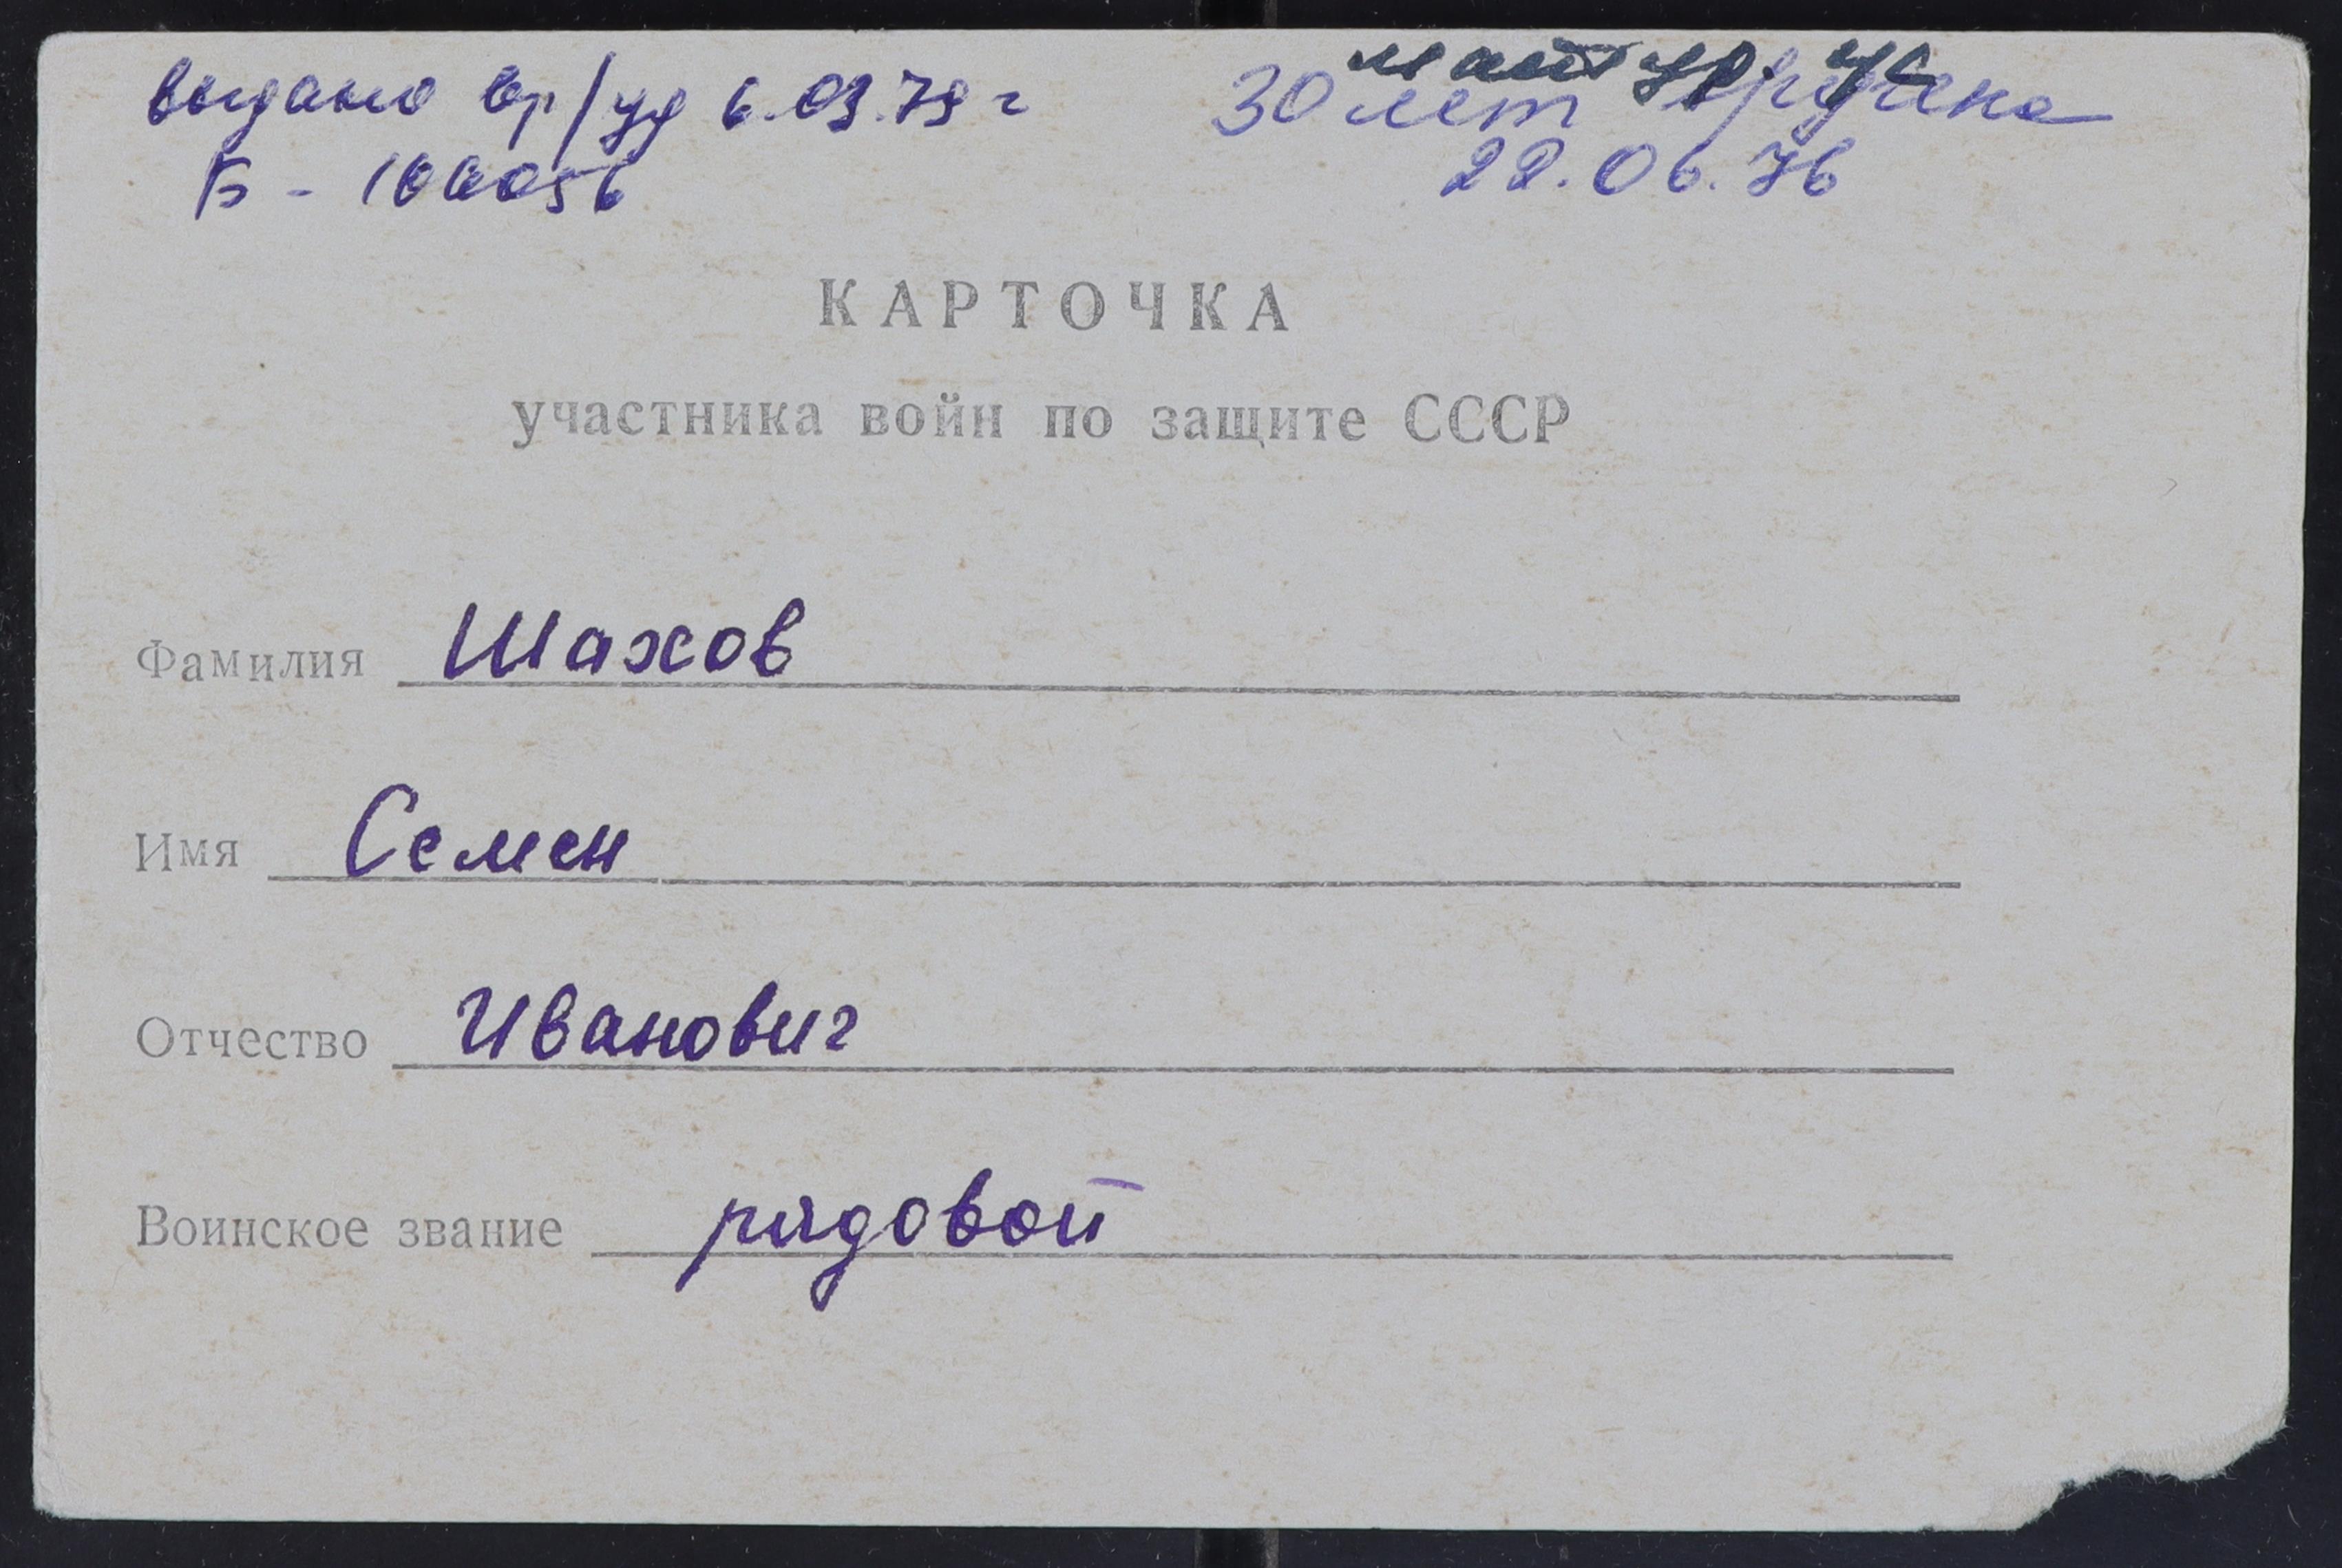 выдано вр/уд 6.03.79 г
Б - 100056
30 лет вручена
22.06.76
КАРТОЧКА
участника войн по защите СССР
Фамилия Шахов
Имя Семен
Отчество Иванович
Воинское звание рядовой